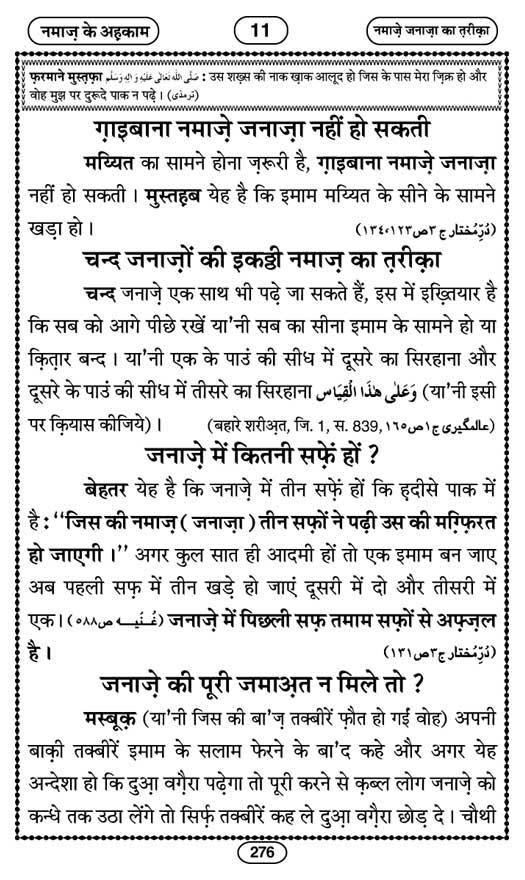 नमाज़ के अह़काम
11
नमाज़े जनाज़ा का त़रीक़ा
फ़रमाने मुस्त़फ़ा صَلَّى اللّٰهُ تَعَالٰى عَلَيْهِ وَ اٰلِهٖ وَسَلَّم : उस शख़्स की नाक ख़ाक आलूद हो जिस के पास मेरा ज़िक्र हो और
वोह मुझ पर दुरूदे पाक न पढ़े । (ترمذى)
ग़ाइबाना नमाज़े जनाज़ा नहीं हो सकती
मय्यित का सामने होना ज़रूरी है, ग़ाइबाना नमाज़े जनाज़ा
नहीं हो सकती । मुस्तह़ब येह है कि इमाम मय्यित के सीने के सामने
खड़ा हो । (دُرِّمُختار ج٣ص١٢٣،١٣٤)
चन्द जनाज़ों की इकठ्ठी नमाज़ का त़रीक़ा
चन्द जनाज़े एक साथ भी पढ़े जा सकते हैं, इस में इख़्तियार है
कि सब को आगे पीछे रखें या'नी सब का सीना इमाम के सामने हो या
क़ित़ार बन्द । या'नी एक के पाउं की सीध में दूसरे का सिरहाना और
दूसरे के पाउं की सीध में तीसरे का सिरहाना وَعَلٰى هٰذَا الْقِيَاس (या'नी इसी
पर क़ियास कीजिये) । (बहारे शरीअ़त, जि. 1, स. 839, عالمگیری ج١ص١٦٥)
जनाज़े में कितनी सफ़ें हों ?
बेहतर येह है कि जनाज़े में तीन सफ़ें हों कि ह़दीसे पाक में
है : ‘‘जिस की नमाज़ ( जनाज़ा ) तीन सफ़ों ने पढ़ी उस की मग़्फ़िरत
हो जाएगी ।’’ अगर कुल सात ही आदमी हों तो एक इमाम बन जाए
अब पहली सफ़ में तीन खड़े हो जाएं दूसरी में दो और तीसरी में
एक । (غُنْيَه ص٥٨٨) जनाज़े में पिछली सफ़ तमाम सफ़ों से अफ़्ज़ल
है । (دُرِّمُختار ج٣ص١٣١)
जनाज़े की पूरी जमाअ़त न मिले तो ?
मस्बूक़ (या'नी जिस की बा'ज़ तक्बीरें फ़ौत हो गईं वोह) अपनी
बाक़ी तक्बीरें इमाम के सलाम फेरने के बा'द कहे और अगर येह
अन्देशा हो कि दुआ़ वग़ैरा पढ़ेगा तो पूरी करने से क़ब्ल लोग जनाज़े को
कन्धे तक उठा लेंगे तो सिर्फ़ तक्बीरें कह ले दुआ़ वग़ैरा छोड़ दे । चौथी
276